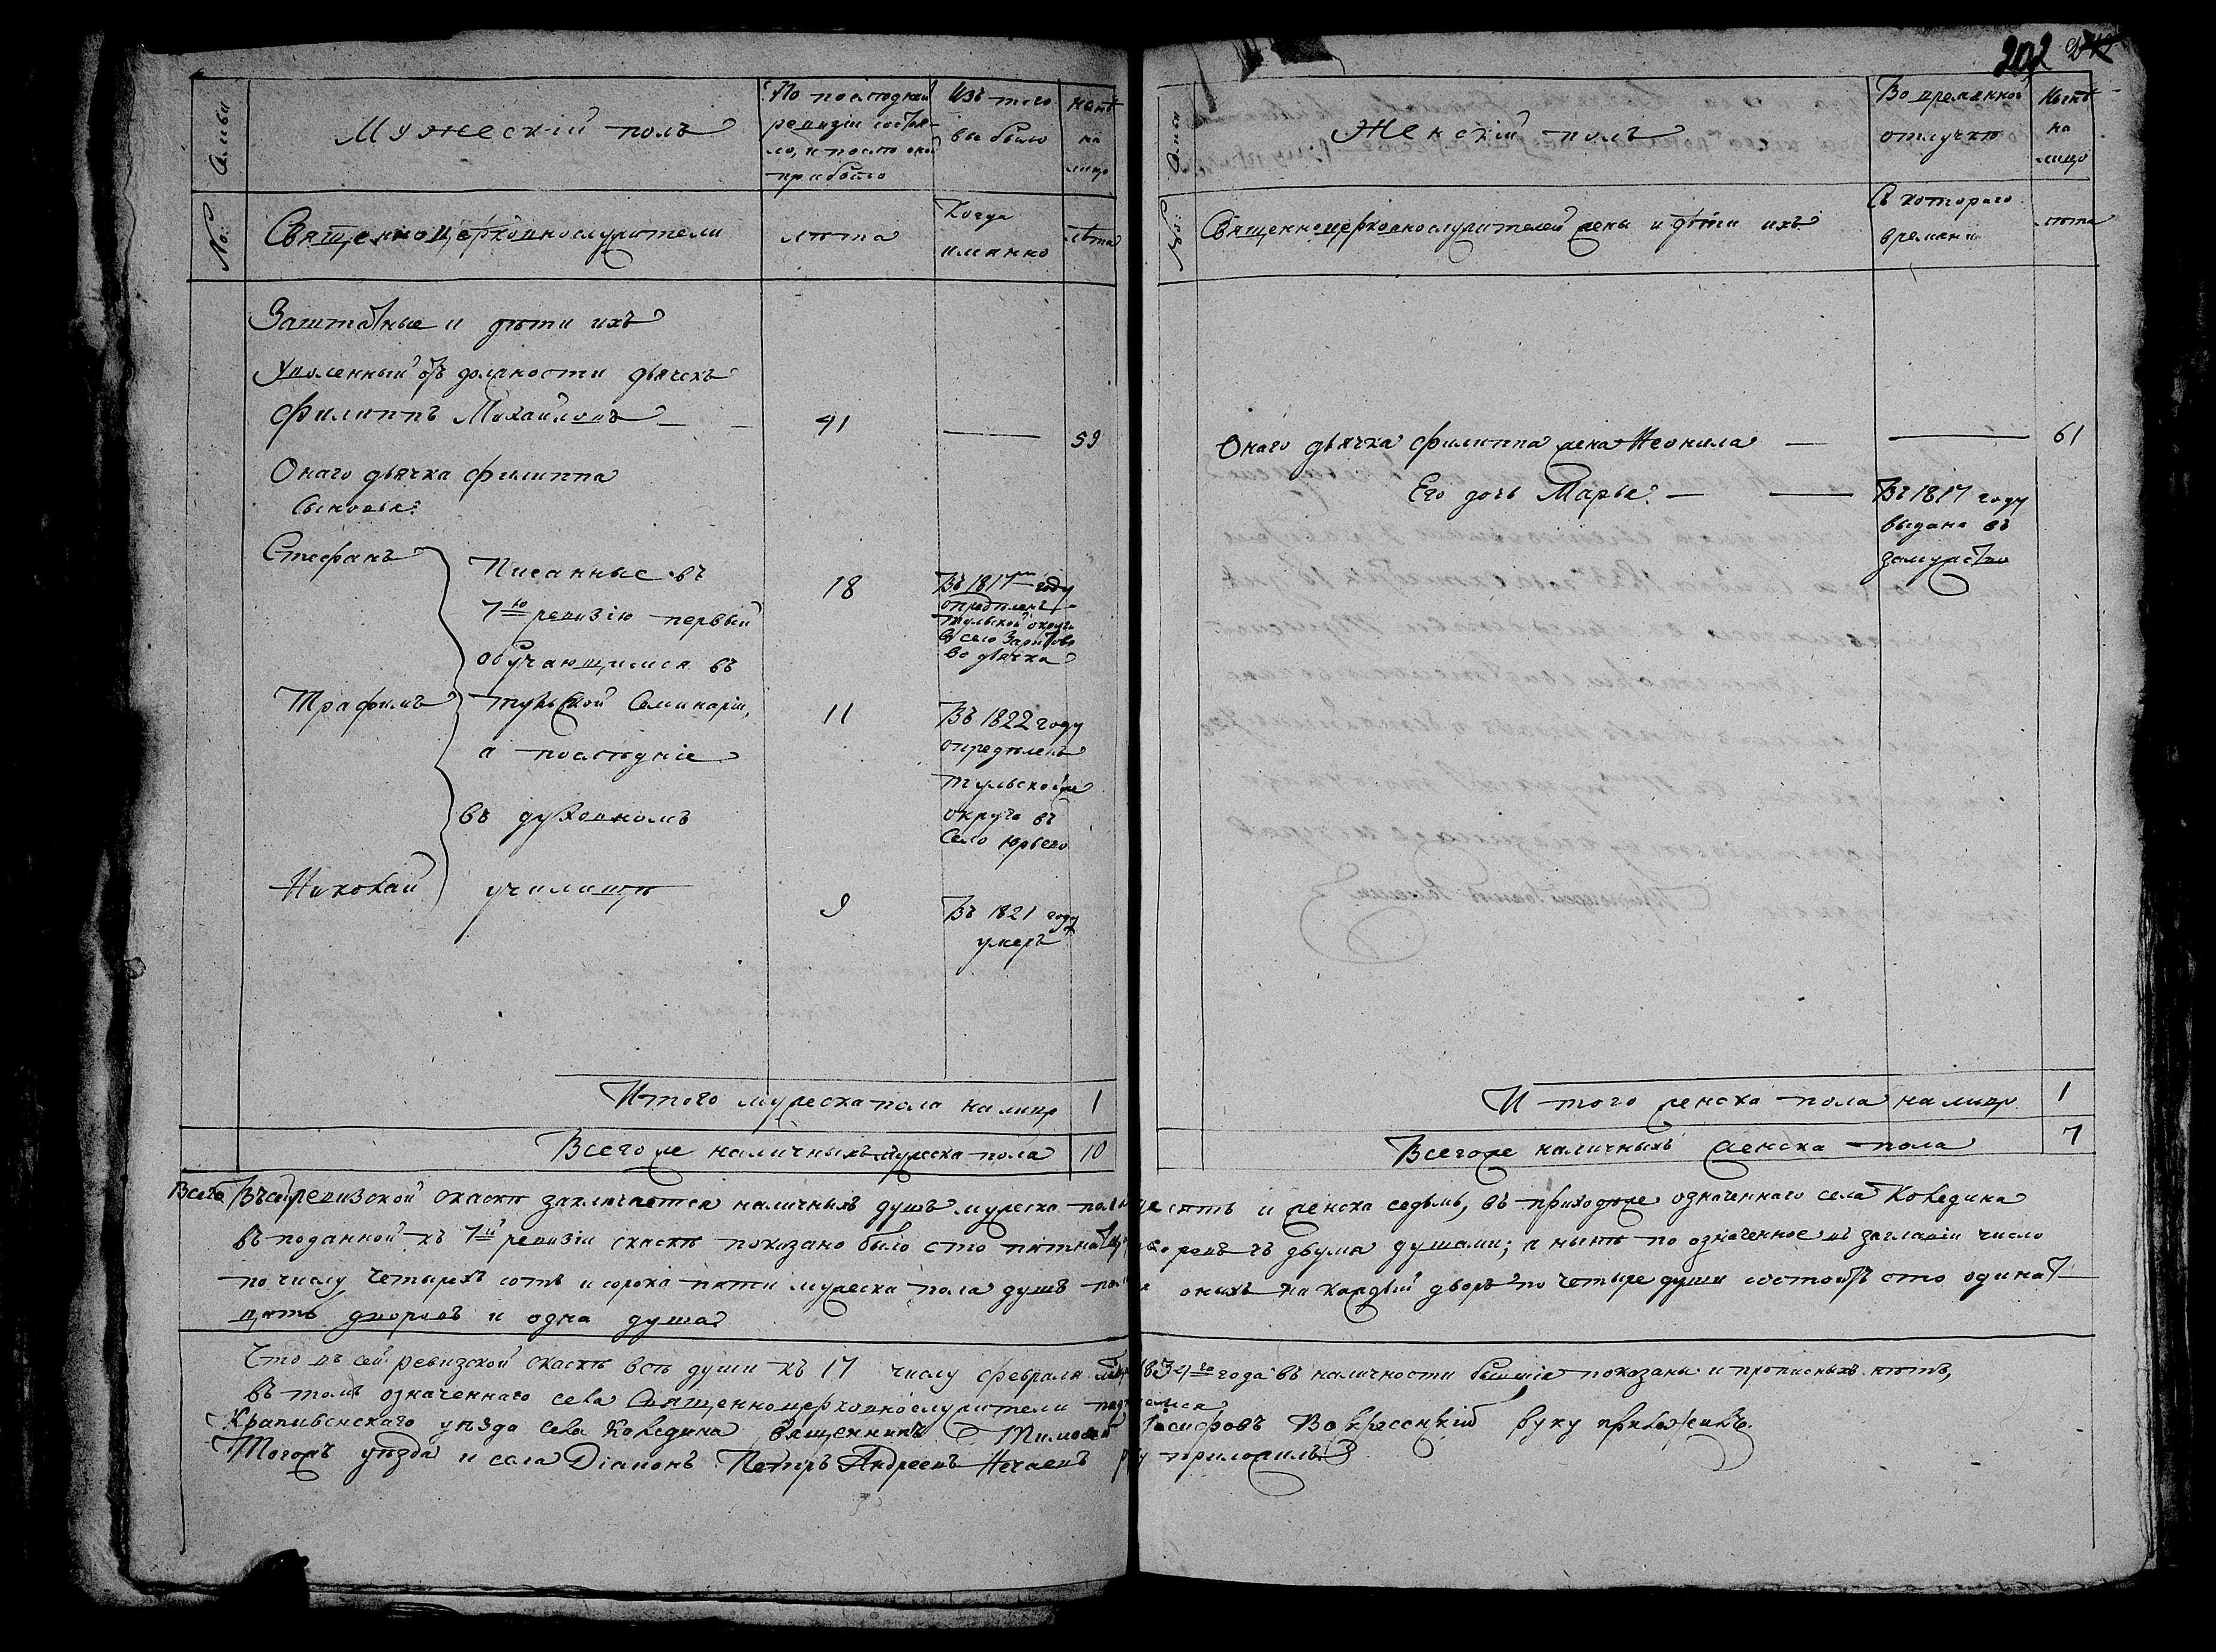 202
Семьи
Мужескій полъ
По последней
ревизіи состоя-
ло, и после оной
прибыло
Изъ того
выбыло
ныне
на
лицо
№:
Священноцерковнослужители
лета
Когда
именно
лета
Заштатные и дети ихъ
Уволенный отъ должности дьячекъ
Филиппъ Михайловъ —
41
59
Онаго дьячка Филиппа
Сыновья:
Стефанъ
Писанные въ
7ю ревизію первый
обучающимся въ
18
Въ 1817мъ году
определенъ
тульской округи
в село
во дьячка
Трафимъ
тульской Семинаріи,
а последніе
въ духовномъ
11
Въ 1822 году
определенъ
тульской же
округи въ
Село Юрьево
Николай
училище
9
Въ 1821 году
умеръ
Итого мужеска пола налицо 1
Всего же наличныхъ мужеска пола 10
Семьи
Женскій полъ
Во временной
отлучке
Ныне
на
лицо
№:
Священноцерковнослужителей жены и дети ихъ
Съ котораго
времени
лета
Онаго дьячка Филиппа жена Неонила — 61
Его дочь Марья. —
Въ 1817 году
выдана въ
замужство
И того женска пола налицо 1
Всего же наличныхъ женска пола 7
Всего Въ сей ревизской скаске заключается наличныхъ душъ мужеска пола десять и женска седьмь, въ приходеже означеннаго села Коледина
въ поданной къ 7й ревизіи скаске показано было сто пятнатцать дворовъ съ двумя душами; а ныне по означенное въ заглавіи число
по числу четырехъ сотъ и сорока пяти мужеска пола душъ оныхъ на каждый дворъ по четыре души состоитъ сто одинат-
цать дворовъ и одна душа
Что въ сей ревизской скаске все души къ 17 числу февраля 1834го года въ наличности бывшіе показаны и прописныхъ нетъ,
въ томъ означеннаго села Священноцерковнослужители подписуемся
Крапивенскаго уезда села Коледина Священникъ Тимофей Іосифовъ Воскресенскій руку приложилъ.
Тогожъ уезда и села Діаконъ Петръ Андреевъ Нечаевъ руку приложилъ